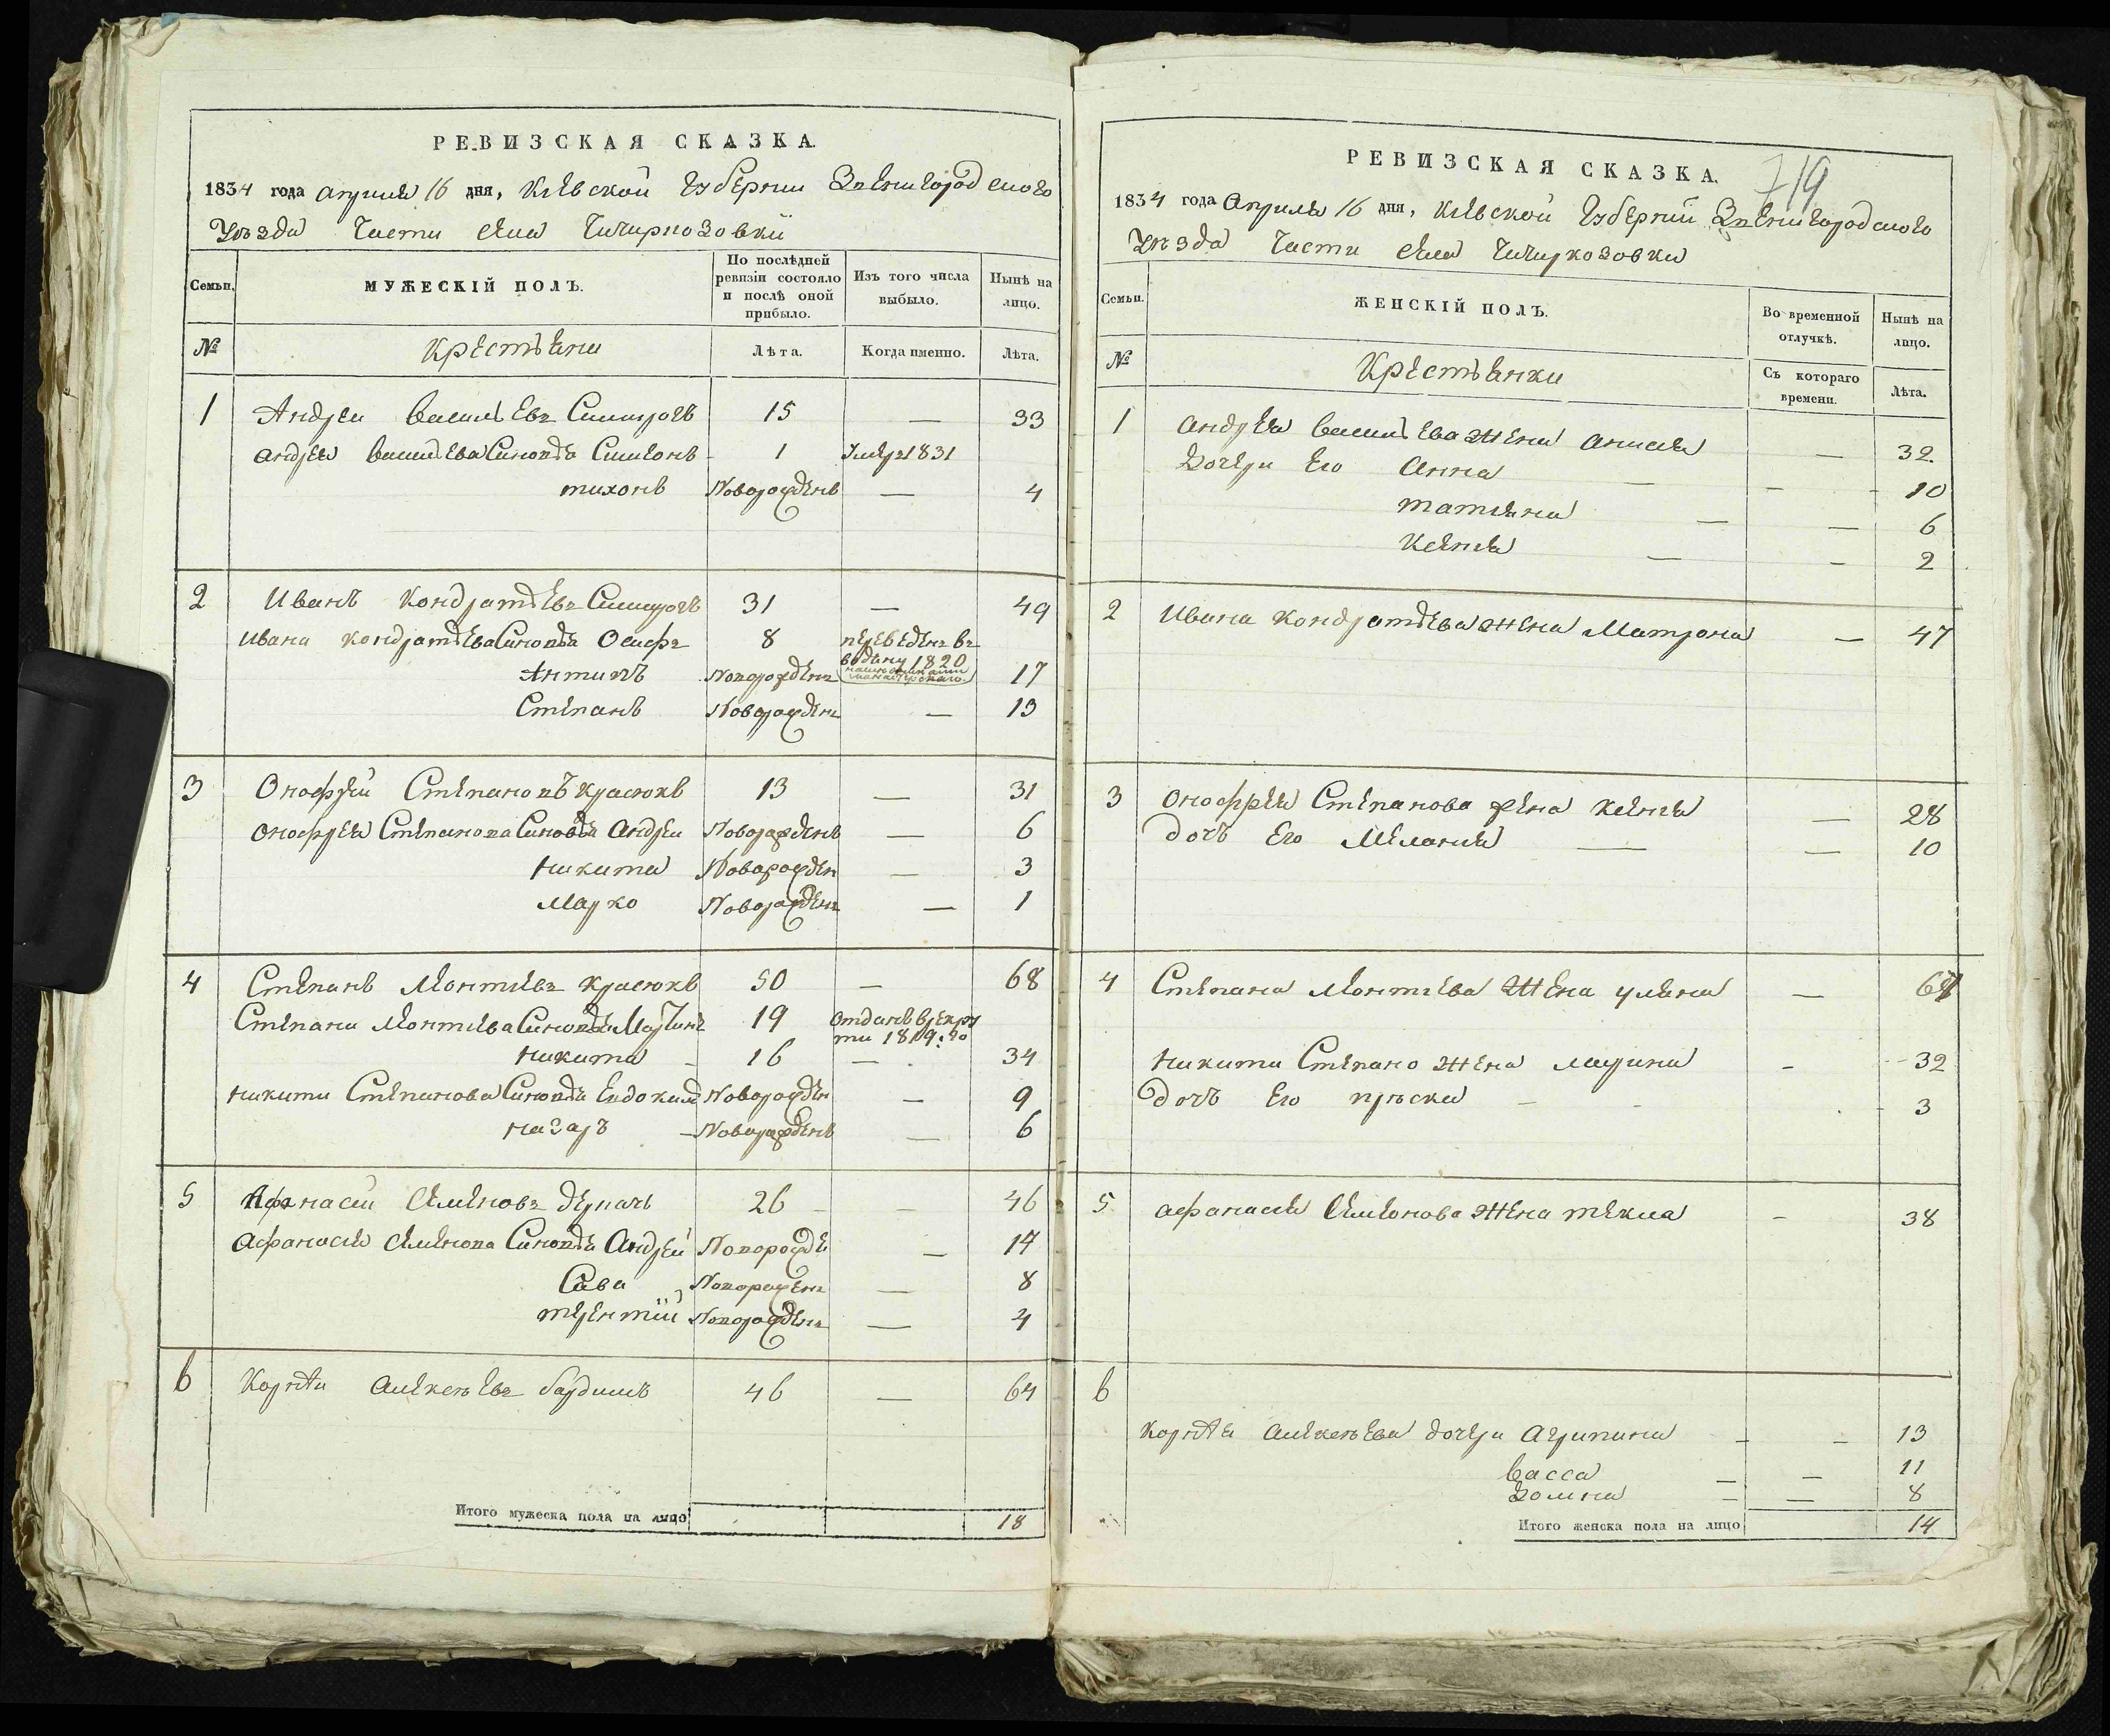 РЕВИЗСКАЯ СКАЗКА.
1834 года Апреля 16 дня, Кіевской Губерніи Звенигородского
Уезда Части Села Чичиркозовки
Семьи. МУЖЕСКІЙ ПОЛЪ. По послѣдней ревизіи состояло и послѣ оной прибыло. Изъ того числа выбыло. Нынѣ на лицо.
№ Крестьяни Лѣта. Когда именно. Лѣта.
1 Андрей Васильевъ 15 — 33
Андрея Васильева Синовья Симионъ 1 Умеръ 1831
Тихонъ Новорожденъ — 4
2 Иванъ Кондратьевъ 31 — 49
Ивана Кондратьева Синовья Осифъ 8 переведенъ въ 1820
Антипъ Новорожденъ 17
Степанъ Новорожденъ — 13
3 Онофрий Степановъ Красюкъ 13 — 31
Онофрея Степанова Синовья Андрей Новорожденъ — 6
Никита Новорожден — 3
Марко Новорожденъ — 1
4 Степанъ Леонтиевъ Красюкъ 50 — 68
Степана Леонтиева Синовья Мартинъ 19 Отданъ в рекру
ти 1819: го
Никита 16 — 34
Никити Степанова Синовья Евдоким Новорожден — 9
Назаръ — Новорожденъ — 6
5 Афанасий Семеновъ Деркачъ 26 — 46
Афанасия Семенова Синовья Андрей Новорожде — 17
Сава Новорожденъ — 8
Терентий Новорожденъ — 4
6 Корней Алексеевъ 46 — 64
Итого мужеска пола на лицо 18
719
РЕВИЗСКАЯ СКАЗКА.
1834 года Апреля 16 дня, Кіевской Губерній Звенигородского
Уезда Части Села Чичиркозовки
Семьи. ЖЕНСКІЙ ПОЛЪ. Во временной отлучкѣ. Нынѣ на лицо.
№ Крестьянки Съ котораго времени. Лѣта.
1 Андрея Васильева Жена Анисия — 32
Дочери Его Анна — — 10
Татияна — — 6
Ксения — — 2
2 Ивана Кондратьева Жена Матрона — 47
3 Онофрея Степанова Жена Ксения — 28
Дочъ Его Мелания — — 10
4 Степана Леонтиева Жена Уляна —
Никити Степано Жена Марина - 32
Дочъ Его Пръска — - 3
5 Афанасия Семионова Жена Текла - 38
6
Корнея Алексеева дочери Агрипина — — 13
Васса — — 11
Домна — — 8
Итого женска пола на лицо 14